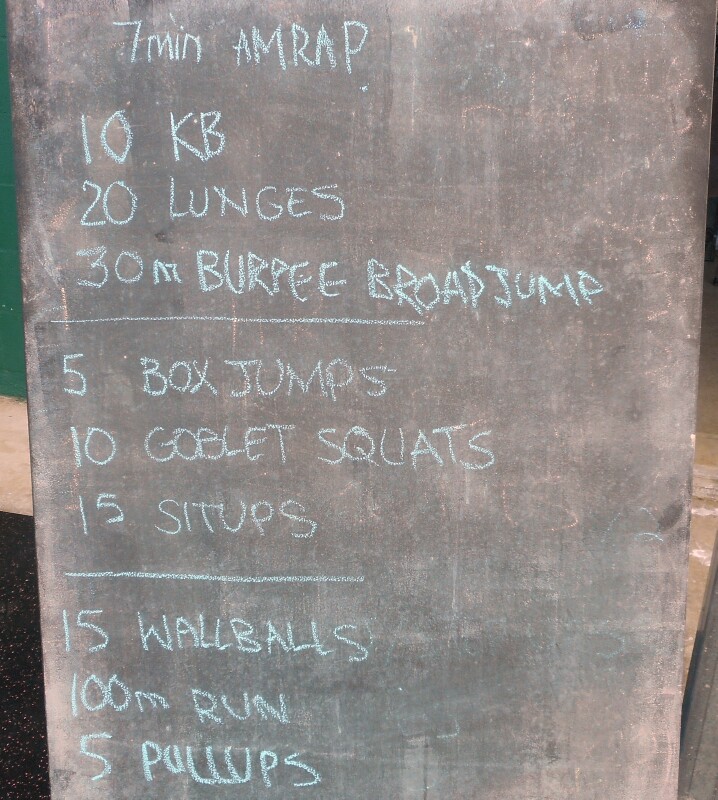 7min AMRAP
10 KB
20 LUNGES
30m BURPEE BROADJUMP
5 BOX JUMPS
10 GOBLET SQUATS
15 SITUPS
15 WALLBALLS
100m RUN
5 PULLUPS